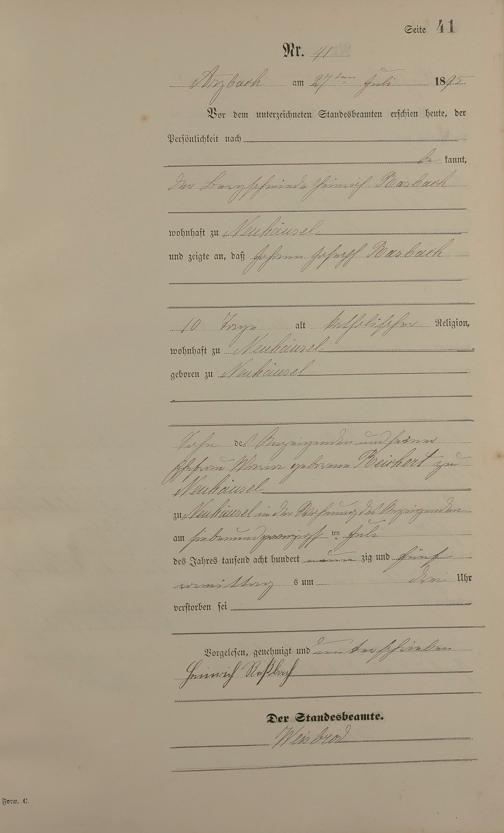 Seite 41
Nr. 41
Arzbach am 27ten Juli 1895
Vor dem unterzeichneten Standesbeamten erschien heute, der
Persönlichkeit nach
be kannt,
der Bergschmied Heinrich Rasbach
wohnhaft zu Neuhäusel
und zeigte an, daß Johann Joseph Rasbach
10 Tage alt katholischer Religion,
wohnhaft zu Neuhäusel
geboren zu Neuhäusel
Sohn des Anzeigenden und seiner
Ehefrau geborene Reichert zu
Neuhäusel
zu Neuhäusel in der Wohnung des Anzeigenden
am siebenundzwanzigsten Juli
des Jahres tausend acht hundert neun zig und fünf
vormittags um drei Uhr
verstorben sei
Vorgelesen, genehmigt und unterschrieben
Heinrich Roßbach
Der Standesbeamte.
Weisbrod
Form. C.